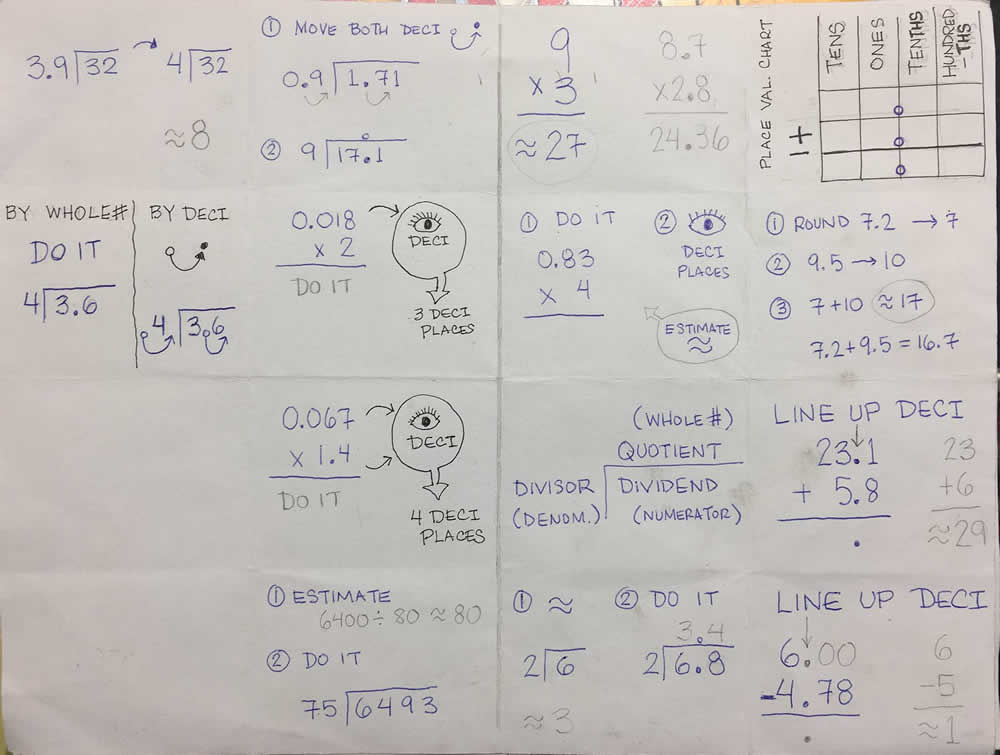 3.9)32 → 4)32
≈8
① MOVE BOTH DECI
0.9)1.71
② 9)17.1
9
x 3
≈27
8.7
x2.8
24.36
PLACE VAL. CHART
1+
TENS
ONES
TENTHS
HUNDRED
-THS
BY WHOLE#
DO IT
4)3.6
BY DECI
.4)3.6
0.018
x 2
DO IT
DECI
3 DECI
PLACES
① DO IT
0.83
x 4
②
DECI
PLACES
ESTIMATE
≈
① ROUND 7.2 → 7
② 9.5 → 10
③ 7+10 ≈17
7.2+9.5=16.7
0.067
x 1.4
DO IT
DECI
4 DECI
PLACES
(WHOLE #)
QUOTIENT
DIVISOR DIVIDEND
(DENOM.) (NUMERATOR)
LINE UP DECI
23.1
+ 5.8
.
23
+6
≈29
① ESTIMATE
6400÷80≈80
② DO IT
75)6493
① ≈
2)6
≈3
② DO IT
3.4
2)6.8
LINE UP DECI
6.00
-4.78
.
6
-5
≈1